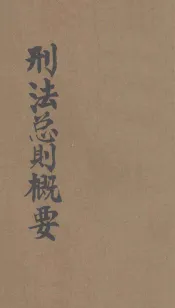 刑法总則概要